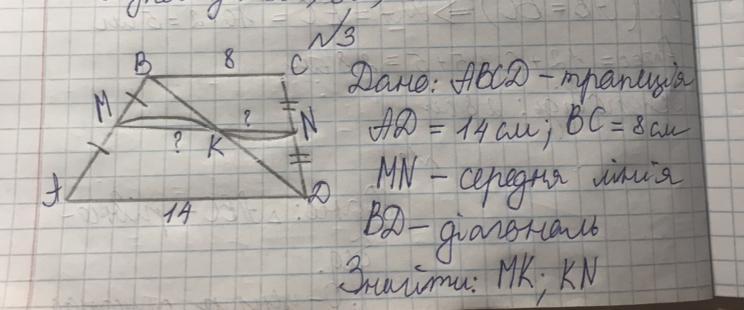 №3
B 8 C
M ? K ? N
A 14 D
Дано: ABCD – трапеція
AD = 14 см; BC = 8 см
MN – середня лінія
BD – діагональ
Знайти: MK; KN